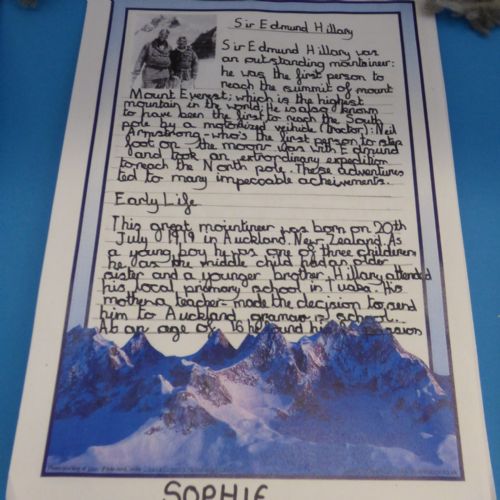 Sir Edmund Hillary
Sir Edmund Hillary was
an outstanding mountaineer:
he was the first person to
reach the summit of mount
Mount Everest; which is the highest
mountain in the world. He is also known
to have been the first to reach the South
pole by a motorized vehicle (tractor): Neil
Armstrong - who's the first person to step
foot on the moon - was with Edmund
and took an extrordinary expedition
to reach the North pole. These adventures
led to many impecable acheivements.
Early Life
This great mointineer was born on 20th
July 1919 in Auckland, New Zealand. As
a young boy he was one of three childeren:
he was the middle child had an older
sister and a younger brother. Hillary attended
his local primary school in Tuaka. His
mother - a teacher - made the decision to send
him to Auckland gramar school.
At an age of 16 he found his passion
SOPHIE